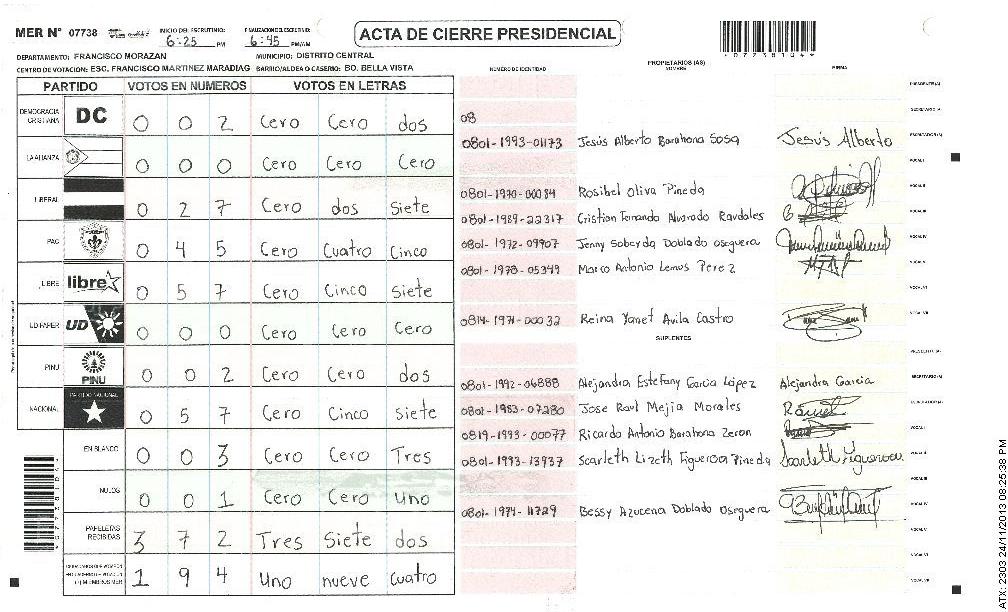 MER N° 07738 INICIO DEL ESCRUTINIO: 6:25 PM FINALIZACION DEL ESCRUTINIO: 6:45 PM/AM
ACTA DE CIERRE PRESIDENCIAL
*07738104*
DEPARTAMENTO: FRANCISCO MORAZAN MUNICIPIO: DISTRITO CENTRAL
CENTRO DE VOTACION: ESC. FRANCISCO MARTINEZ MARADIAG BARRIO/ALDEA O CASERIO: BO. BELLA VISTA
NUMERO DE IDENTIDAD PROPIETARIOS (AS) NOMBRE FIRMA
PARTIDO VOTOS EN NUMEROS VOTOS EN LETRAS
DEMOCRACIA CRISTIANA DC 0 0 2 Cero Cero dos
LA ALIANZA 0 0 0 Cero Cero Cero
LIBERAL 0 2 7 Cero dos Siete
PAC 0 4 5 Cero Cuatro Cinco
LIBRE libre 0 5 7 Cero Cinco Siete
UD FAPER UD 0 0 0 Cero Cero Cero
PINU PINU 0 0 2 Cero Cero dos
NACIONAL PARTIDO NACIONAL 0 5 7 Cero Cinco siete
EN BLANCO 0 0 3 Cero Cero Tres
NULOS 0 0 1 Cero Cero uno
PAPELETAS RECIBIDAS 3 7 2 Tres Siete dos
1 9 4 Uno nueve cuatro
PRESIDENTE (A)
08 SECRETARIO (A)
0801-1993-01173 Jesús Alberto Barahona Sosa Jesús Alberto ESCRUTADOR (A)
VOCAL I
0801-1970-00084 Rosibel Oliva Pineda VOCAL II
0801-1989-22317 Cristian Fernando Alvarado Raudales VOCAL III
0801-1972-09907 Jenny Doblado Oseguera VOCAL IV
0801-1978-05349 Marco Antonio Lemus Perez VOCAL V
VOCAL VI
0814-1971-00032 Reina Yanet Avila Castro VOCAL VII
SUPLENTES
PRESIDENTE (A)
0801-1992-06888 Alejandra Estefany Garcia López Alejandra Garcia SECRETARIO (A)
0801-1983-07280 Jose Raul Mejia Morales ESCRUTADOR (A)
0819-1993-00077 Ricardo Antonio Barahona Zeron VOCAL I
0801-1993-13937 Scarleth Lizeth Figueroa Pineda Scarleth Figueroa VOCAL II
VOCAL III
0801-1974-11729 Bessy Azucena Doblado Oseguera VOCAL IV
VOCAL V
VOCAL VI
VOCAL VII
ATX: 2303 24/11/2013 08:25:38 PM